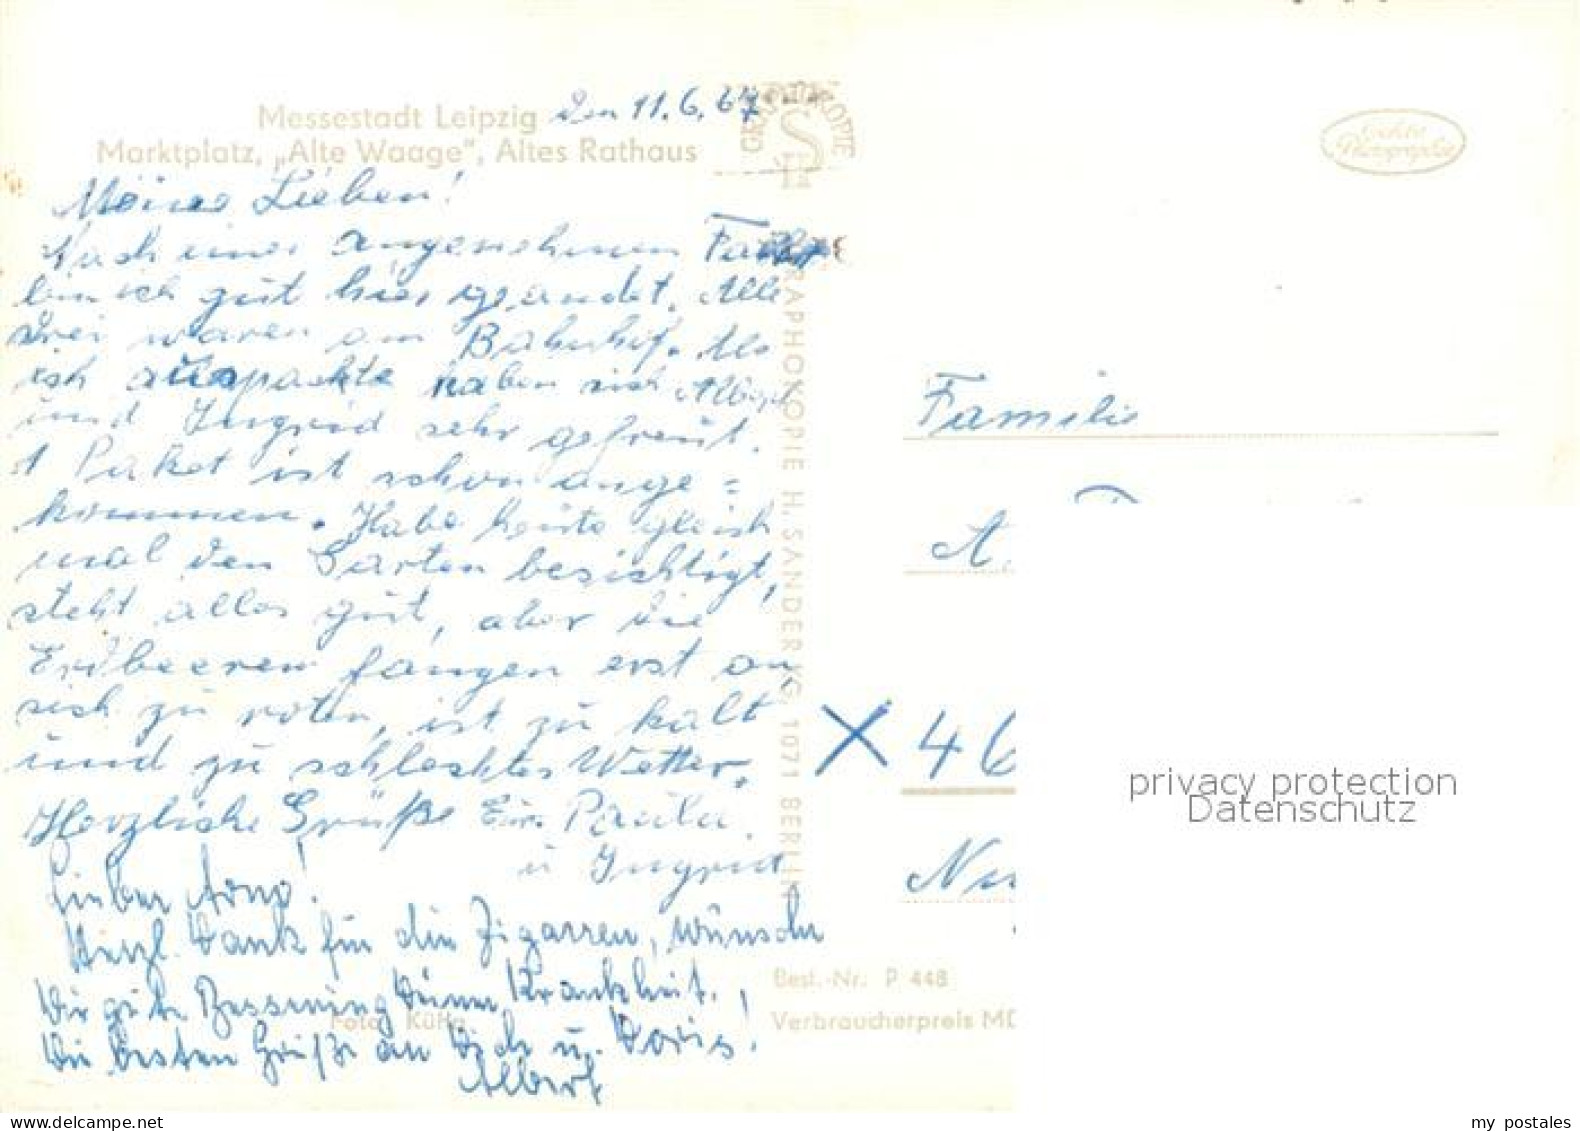 Messestadt Leipzig
Marktplatz, „Alte Waage“, Altes Rathaus
den 11.6.67
Meine Lieben!
Nach einer angenehmen Fahrt
bin ich gut hier gelandet. Alle
drei waren am Bahnhof. Als
ich auspackte haben sich Albert
und Ingrid sehr gefreut.
1 Paket ist schon ange=
kommen. Habe heute gleich
mal den Garten besichtigt,
steht alles gut, aber die
Erdbeeren fangen erst an,
sich zu röten, ist zu kalt
und zu schlechtes Wetter.
Herzliche Grüße Eure Paula.
u Ingrid
Lieber Arno!
Herzl. Dank für die Zigarren, wünsche
Dir gute Besserung Deiner Krankheit.
Die besten Grüße an Dich u. Doris!
Albert
Foto: Kühn
GRAPHOKOPIE
GRAPHOKOPIE H. SANDER KG, 1071 BERLIN
Best.-Nr. P 448
Verbraucherpreis MD
Echte
Photographie
Familie
A.
X 46
Nu
privacy protection
Datenschutz
my postales